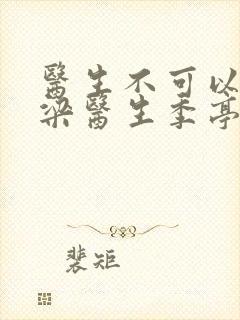 醫生不可以
梁醫生季亭
裴矩